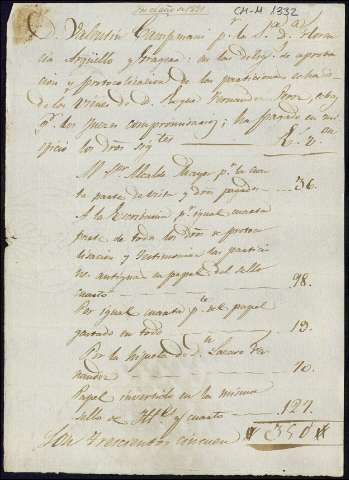 CM-M 1332
D. Valentin Campmani p.r la S.a D.a Floren
cia Argüello y Aragon: en las de
cion y protocolizacion de las particiones
de los vienes de D. Roque Fernandez
p.r los Jueces compromisarios; ha pagado en mi
oficio los dros sig.tes
R. v.
Al S.or Alcalde Mayor p.r la cuar
ta parte de vista y dros pagados ... 36.
A la Escribania p.r igual cuarta
parte de todos los dros de protoco
lizacion y testimonio las particio
nes antiguas en papel del sello
cuarto 98.
Por igual cuarta p.te del papel
gastado en todo 19.
Por la hijuela de D. Lazaro Fer
nandez 70.
Papel invertido en la misma
sello de Ill.s y cuarto 127.
Son trescientos cincuen 350